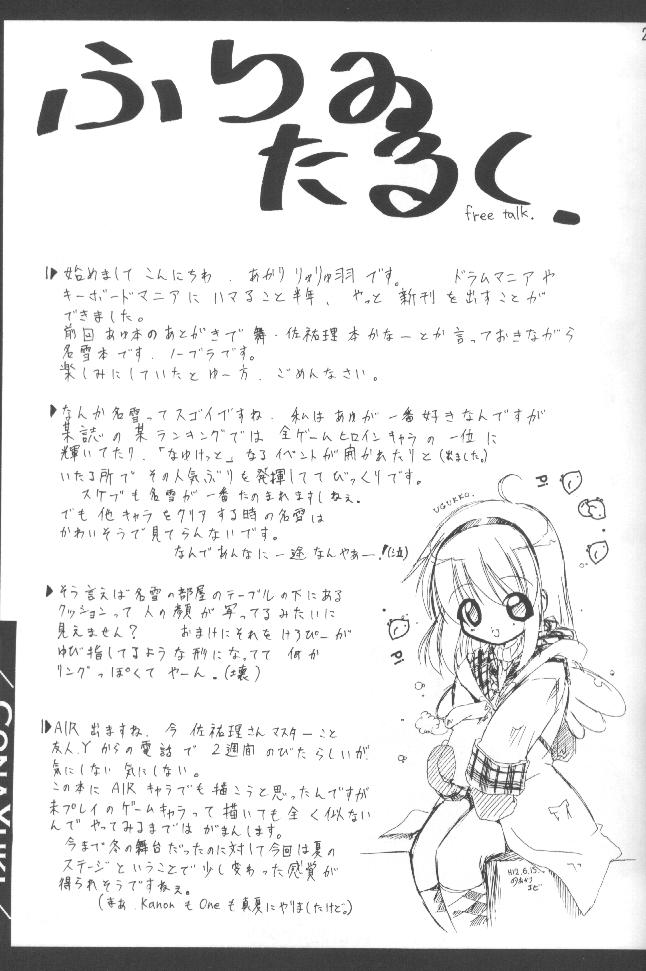 ふりゐ
たるく.
free talk.
始めまして こんにちわ. あかりりゅりゅ羽 です。 ドラムマニアや
キーボードマニアに ハマること半年、 やっと 新刊 を出すことが
できました。
前回 あゆ本のあとがきで 舞・佐祐理 本かなーとか言っておきながら
名雪本です. ノーブラです。
楽しみにしていたとゆー方、ごめんなさい。
なんか名雪ってスゴイですね. 私はあゆが一番好きなんですが
某誌の某ランキングでは 全ゲームヒロインキャラの一位に
輝いてたり、「なゆけっと」なるイベントが開かれたりと (出ました。)
いたる所で その人気ぶりを発揮しててびっくりです。
スケブも名雪が一番たのまれますしねぇ。
でも 他キャラをクリアする時の名雪は
かわいそうで見てらんないです。
なんであんなに一途なんやぁー!(泣)
そう言えば名雪の部屋のテーブルの下にある
クッションって 人の顔が写ってるみたいに
見えません? おまけにそれを けろぴーが
ゆび指してるような形になってて 何か
リングっぽくて やーん.(壊)
AIR 出ますね. 今 佐祐理さんマスターこと
友人.Yからの電話で 2週間のびたらしいが
気にしない 気にしない。
この本に AIR キャラでも描こうと思ったんですが
未プレイのゲームキャラって 描いても全く似ない
んで やってみるまでは がまんします。
今まで冬の舞台だったのに対して今回は夏の
ステージということで少し変わった感覚が
得られそうですねぇ。
(まぁ. Kanon も One も真夏にやりましたけど。)
UGUKKO.
Pi
Pi
H12.6.15.